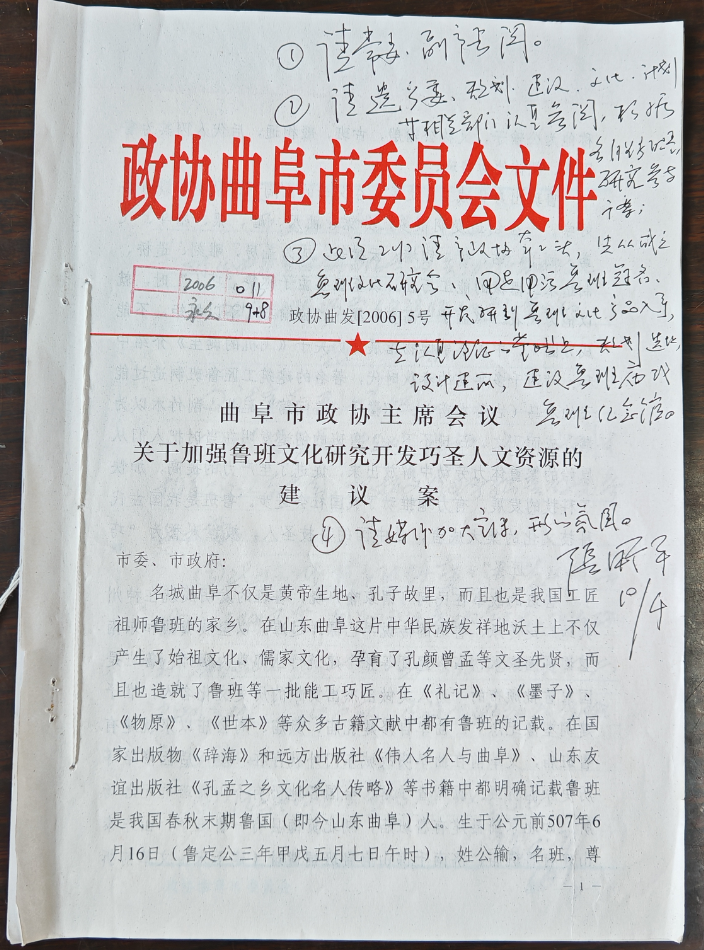 ① 请常委、副市长阅。
② 请遗产委、规划、建设、文化、计划
等相关部门认真参阅，根据
研究参与
方案；
政协曲阜市委员会文件
③ 请市政协牵头，先成立
鲁班文化研究会、
2006 011
永久 9+8
政协曲发[2006] 5号
开展研制鲁班文化产品入手，
在认真论证的基础上，规划选址，
设计建
建设鲁班庙或
鲁班纪念馆。
曲阜市政协主席会议
关于加强鲁班文化研究开发巧圣人文资源的
建议案
④ 请媒体加大宣传，形成氛围。
10/4
市委、市政府：
名城曲阜不仅是黄帝生地、孔子故里，而且也是我国工匠
祖师鲁班的家乡。在山东曲阜这片中华民族发祥地沃土上不仅
产生了始祖文化、儒家文化，孕育了孔颜曾孟等文圣先贤，而
且也造就了鲁班等一批能工巧匠。在《礼记》、《墨子》、
《物原》、《世本》等众多古籍文献中都有鲁班的记载。在国
家出版物《辞海》和远方出版社《伟人名人与曲阜》、山东友
谊出版社《孔孟之乡文化名人传略》等书籍中都明确记载鲁班
是我国春秋末期鲁国（即今山东曲阜）人。生于公元前507年6
月16日（鲁定公三年甲戌五月七日午时），姓公输，名班，尊
—1—